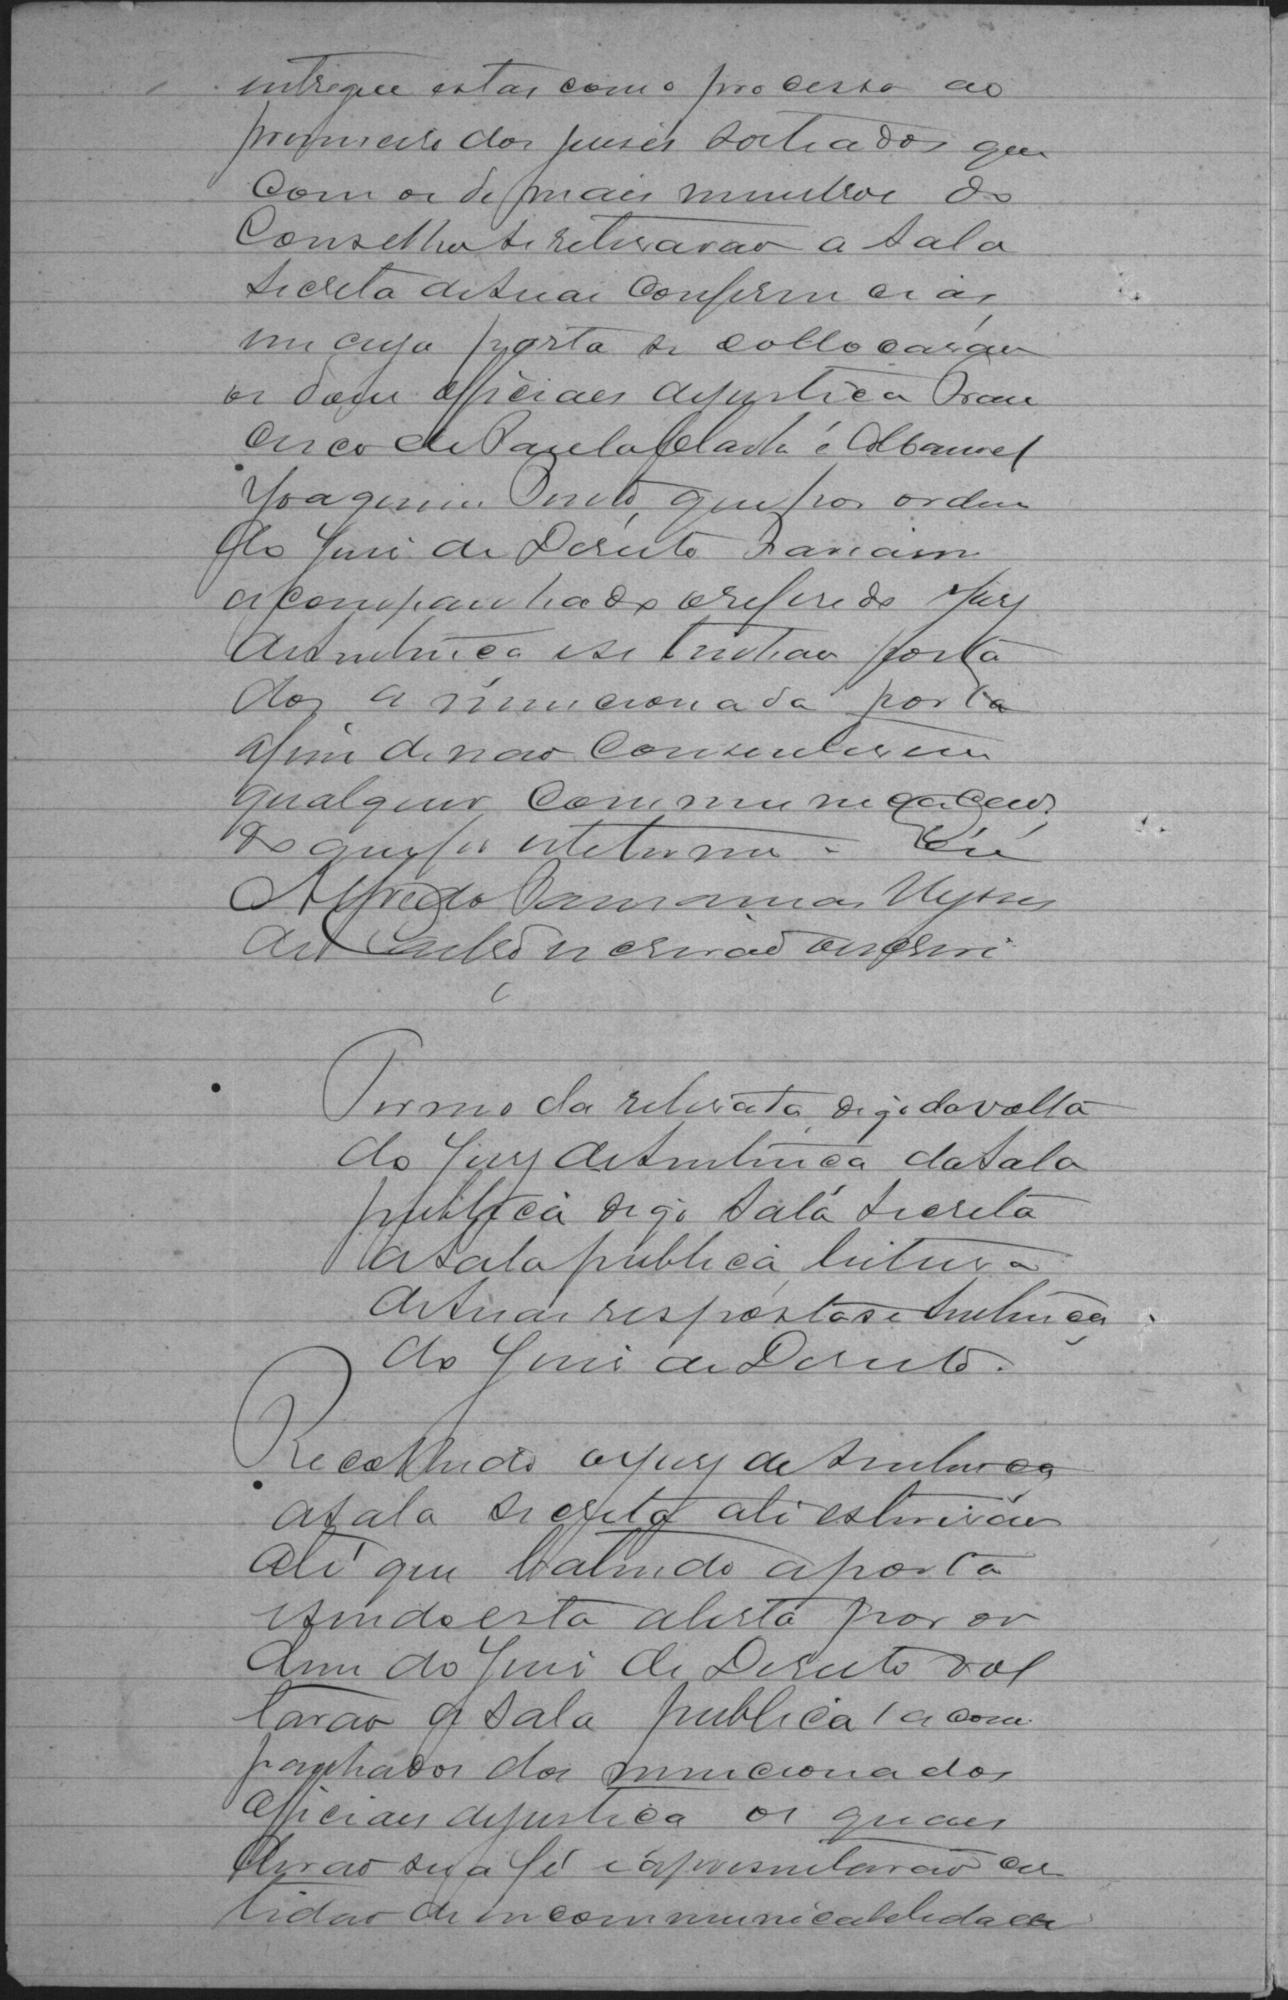 entregue estas com o processo ao
primeiro dos juises sorteados que
com os de mais membros do
Conselho se retirarão a sala
secreta de suas conferencias,
em cuja porta se collocarão
os dous officiaes de justiça Fran
cisco de Paula e Manoel
Joaquim Pinto, que por ordem
do Juis de Direito havião
acompanhado o referido Jury
de sentença e se tinhão posta
dos a mencionada porta
afim de não consentirem
qualquer communicação,
do que fis este termo. Eu
Alfredo Ulysses
de Castro escrivão escrevi
Termo da retirata, digo da volta
do Jury de Sentença da Sala
publica digo Sala Secreta
a Sala publica, leitura
de suas respostas e Sentença
do Juis de Direito.
Recolhido o jury de Sentença
a sala secreta ali estiverão
até que batendo a porta
e sendo esta aberta por or
dem do Juis de Direito vol
tarão a sala publica acom
panhados dos mencionados
officiaes de justiça os quaes
derão sua fé e apresentarão cer
tidão de incommunicabilidade